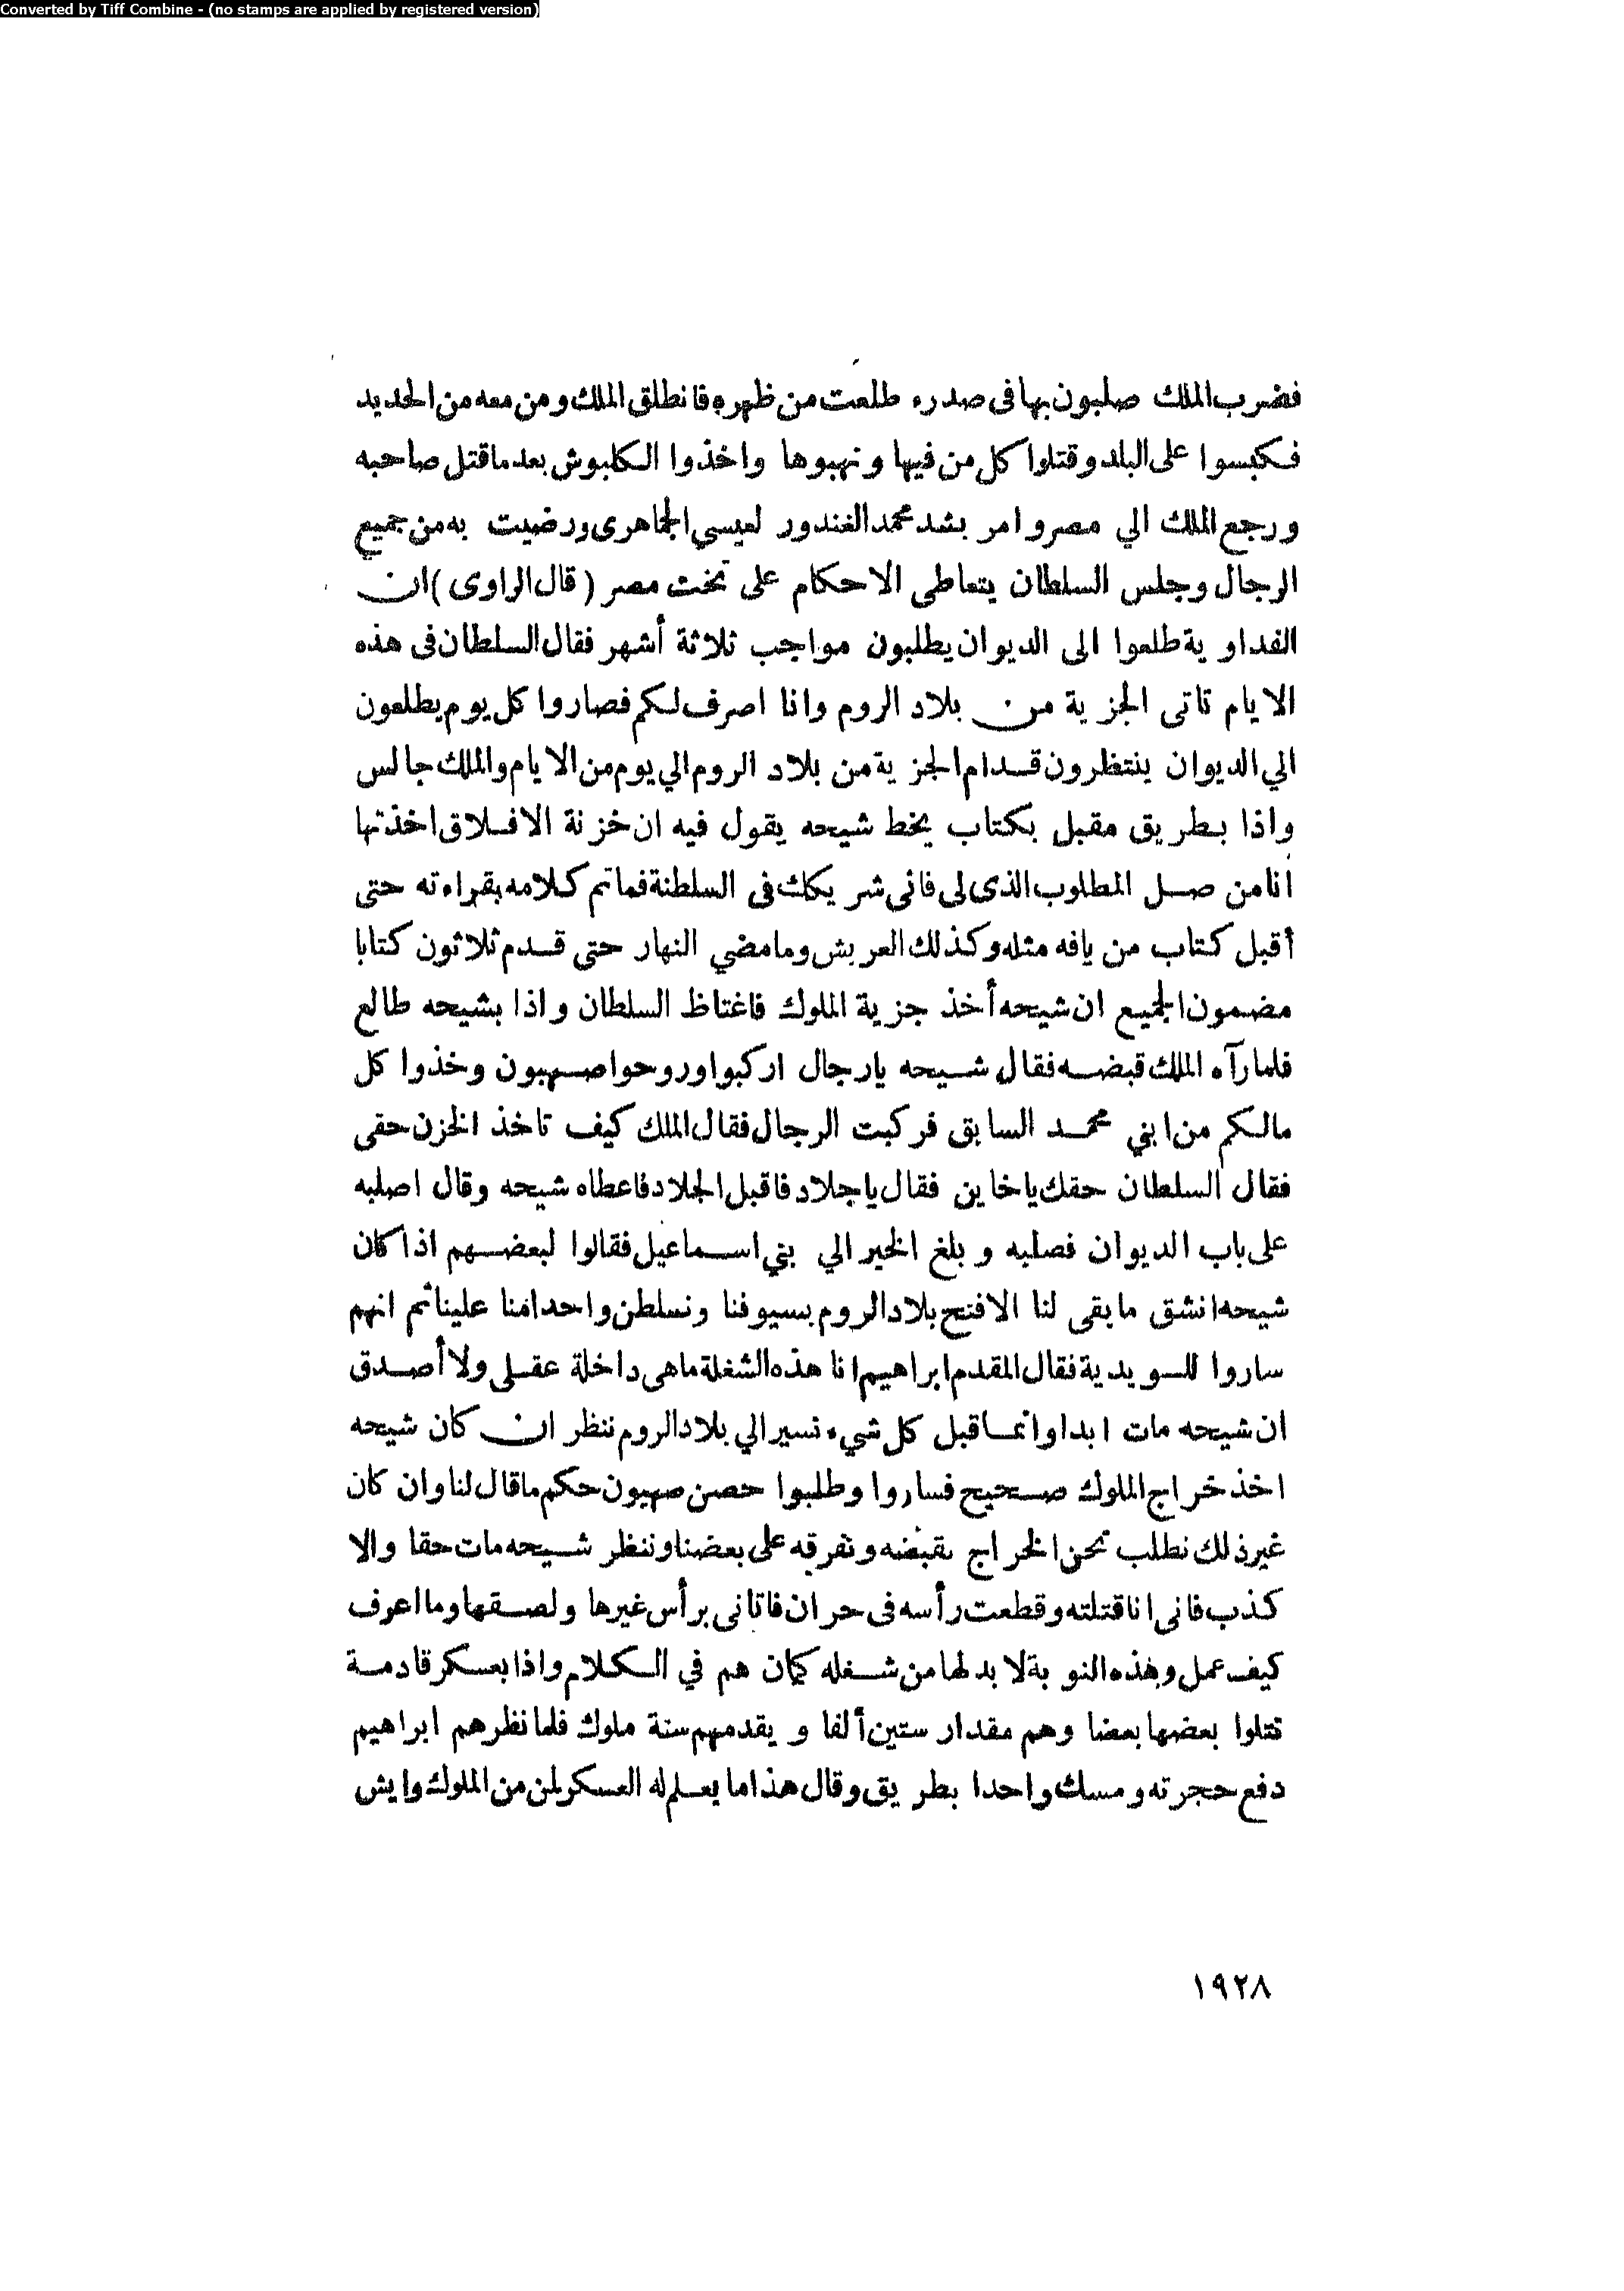 Converted by Tiff Combine - (no stamps are applied by registered version)
فضرب الملك صلبون بها فى صدره طلعت من ظهره فانطلق الملك ومن معه من الحديد
فكبسوا على البلد وقتلوا كل من فيها ونهبوها واخذوا الكلبوش بعد ماقتل صاحبه
ورجع الملك الي مصر وامر بشد محمد الغندور لعيسي الجماهرى ورضيت به من جميع
الرجال وجلس السلطان يتعاطى الاحكام على تخت مصر (قال الراوى) ان
الفداوية طلعوا الى الديوان يطلبون مواجب ثلاثة أشهر فقال السلطان فى هذه
الايام تاتى الجزية من بلاد الروم وانا اصرف لكم فصاروا كل يوم يطلعون
الي الديوان ينتظرون قدام الجزية من بلاد الروم الي يوم من الايام والملك جالس
واذا بطريق مقبل بكتاب بخط شيحه يقول فيه ان خزنة الافلاق اخذتها
أنا من صل المطلوب الذى لى فانى شريكك فى السلطنة فماتم كلامه بقراءته حتى
أقبل كتاب من يافه مثله وكذلك العريش ومامضي النهار حتى قدم ثلاثون كتابا
مضمون الجميع ان شيحه أخذ جزية الملوك فاغتاظ السلطان واذا بشيحه طالع
فلما رآه الملك قبضه فقال شيحه يارجال اركبوا وروحوا صهيون وخذوا كل
مالكم من ابني محمد السابق فركبت الرجال فقال الملك كيف تاخذ الخزن حقى
فقال السلطان حقك ياخاين فقال ياجلاد فاقبل الجلاد فاعطاه شيحه وقال اصلبه
على باب الديوان فصلبه وبلغ الخبر الي بني اسماعيل فقالوا لبعضهم اذا كان
شيحه انشق مابقى لنا الافتح بلاد الروم بسيوفنا ونسلطن واحدا منا علينا ثم انهم
ساروا للسويدية فقال المقدم ابراهيم انا هذه الشغلة ماهى داخلة عقلى ولا أصدق
ان شيحه مات ابدا وانما قبل كل شيء نسير الي بلاد الروم ننظر ان كان شيحه
اخذ خراج الملوك صحيح فساروا وطلبوا حصن صهيون حكم ماقال لنا وان كان
غير ذلك نطلب نحن الخراج نقبضه ونفرقه على بعضنا وننظر شيحه مات حقا والا
كذب فانى انا قتلته وقطعت رأسه فى حران فاتانى برأس غيرها ولصقها وما اعرف
كيف عمل وهذه النوبة لا بد لها من شغله كمان هم في الكلام واذا بعسكر قادمة
تتلوا بعضها بعضا وهم مقدار ستين ألفا ويقدمهم ستة ملوك فلما نظرهم ابراهيم
دفع حجرته ومسك واحدا بطريق وقال هذا ما يعلم له العسكر لمن من الملوك وايش
١٩٢٨